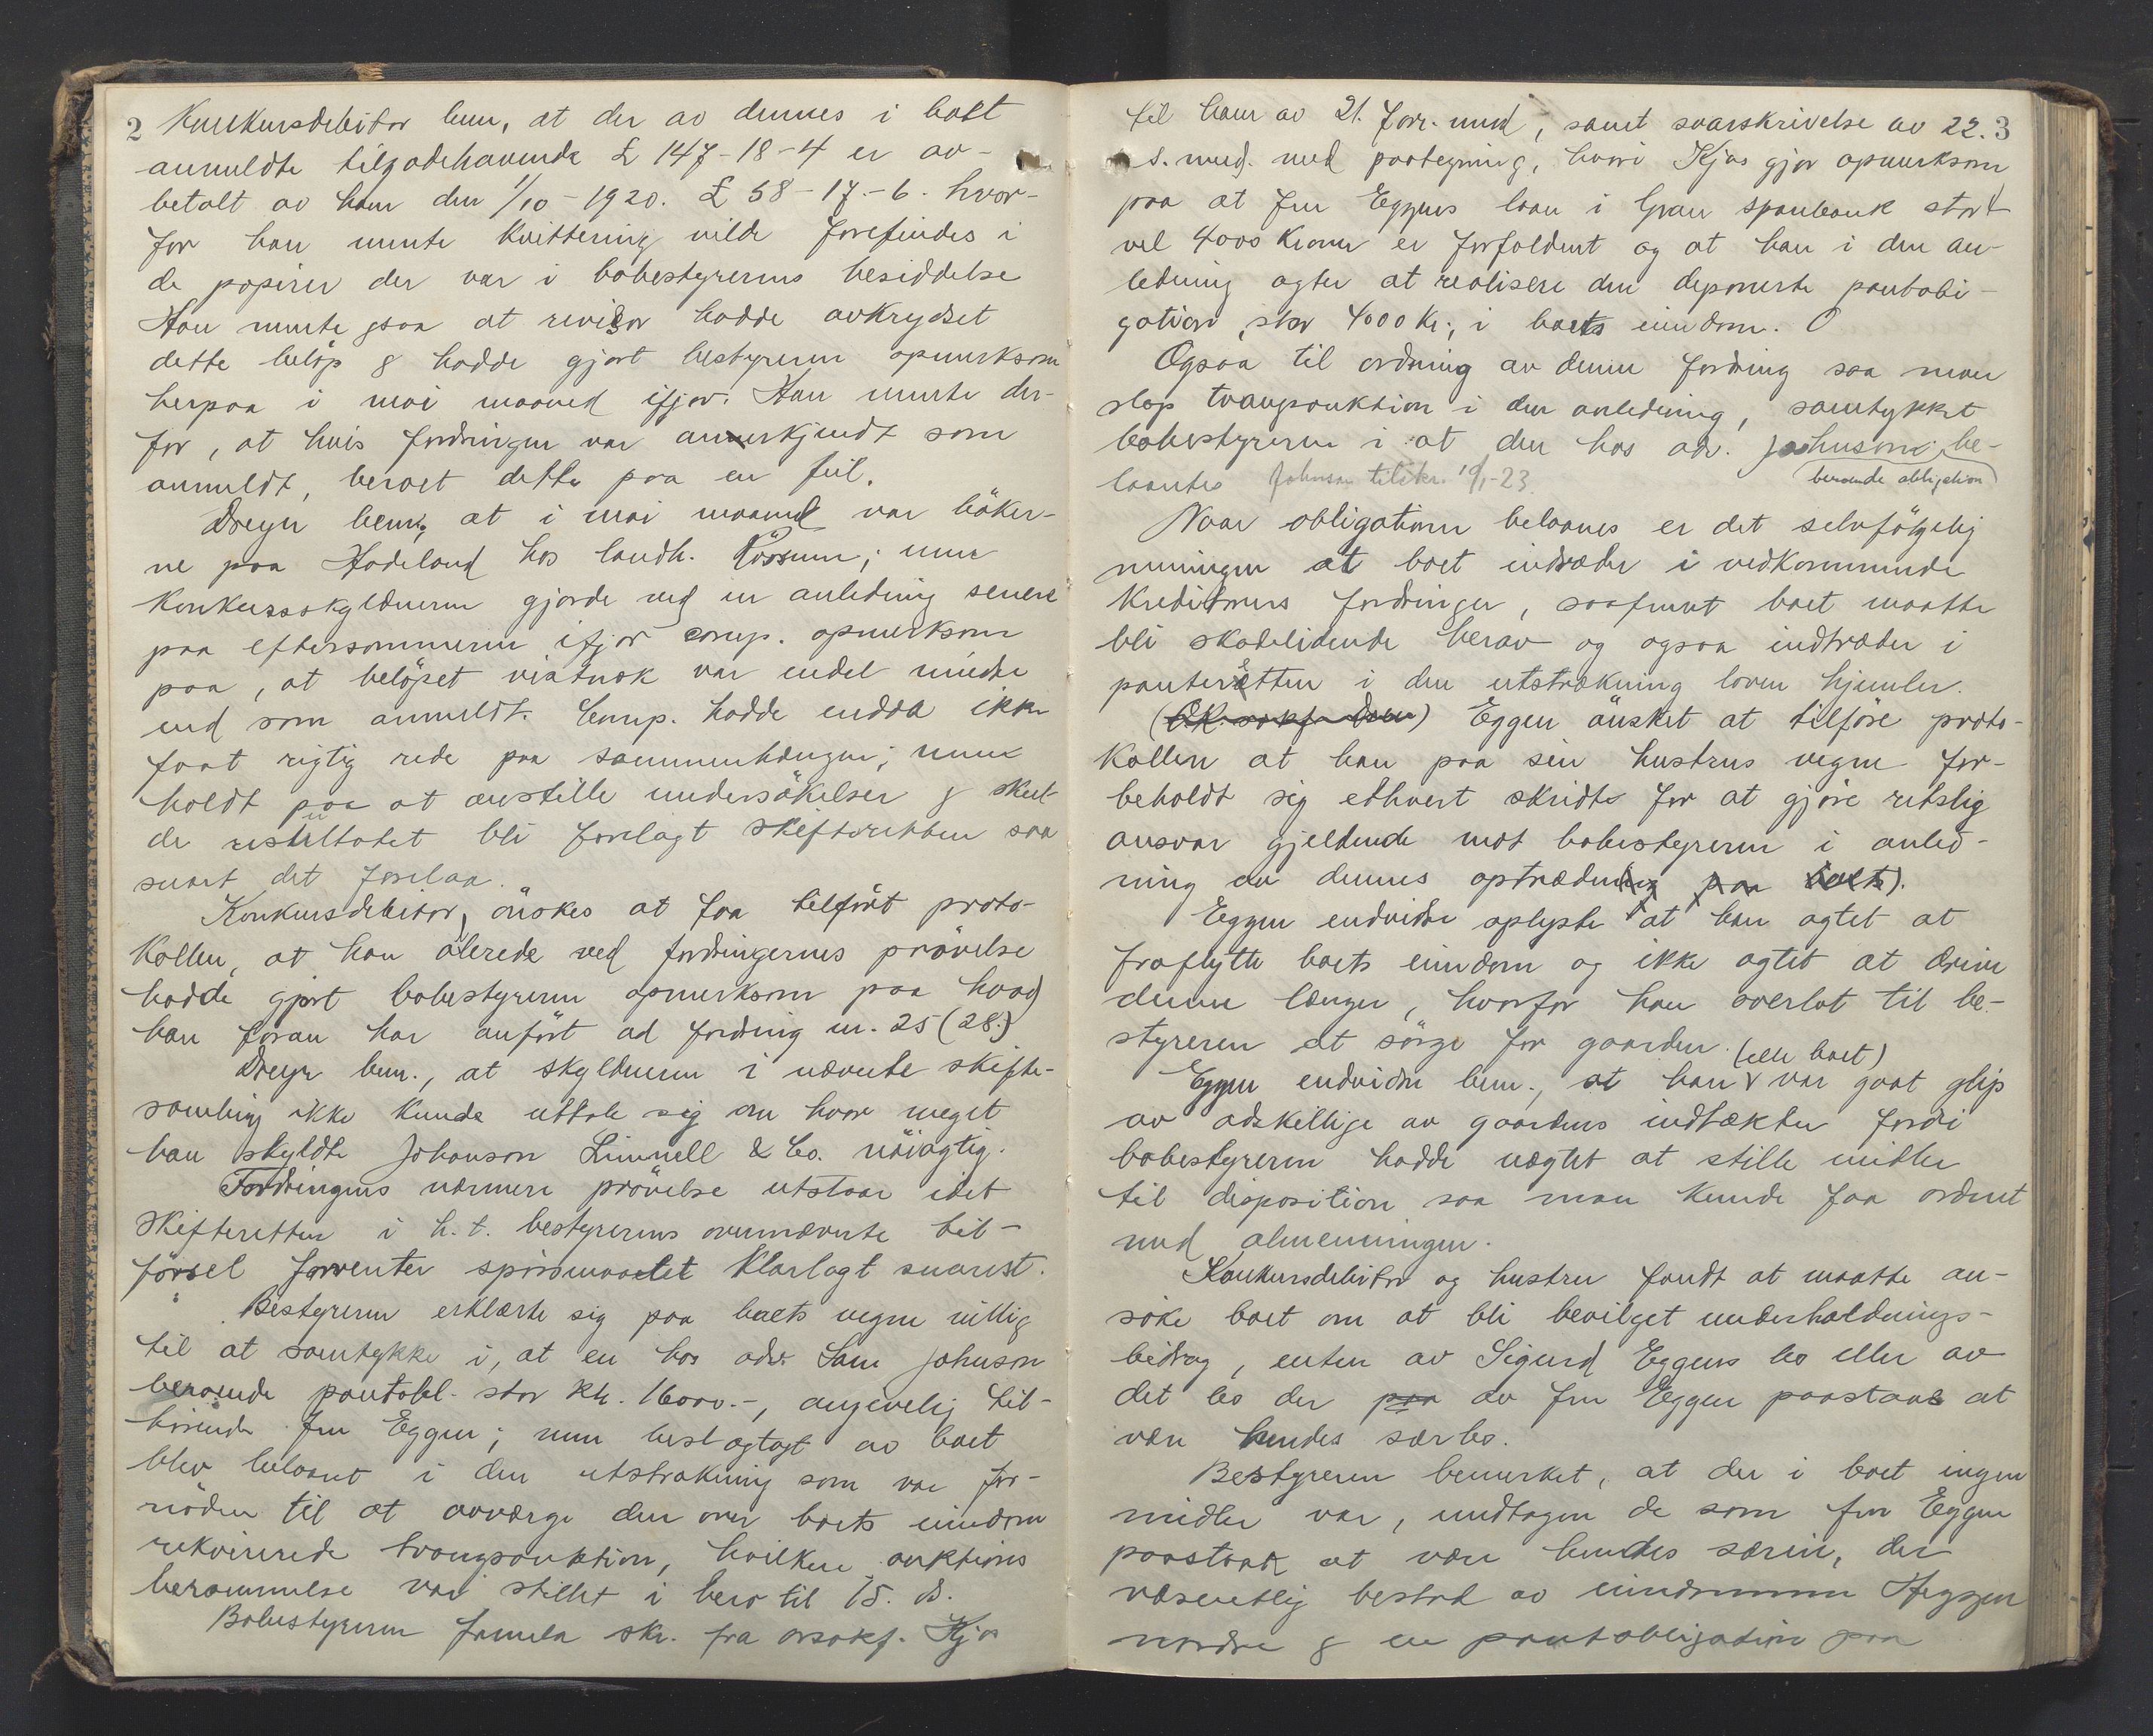 2
Konkursdebitor bem, at der av dennes i boet
anmeldte tilgodehavende £ 147-18-4 er av-
betalt av ham den 1/10-1920. £ 58-17-6. hvor-
for han mente kvittering vilde forefindes i
de papirer der var i bobestyrerens besiddelse
Han mente ogsaa at revisor hadde avkrydset
dette beløp & hadde gjort bestyreren opmerksom
herpaa i mai maaned ifjor. Han mente der-
for, at hvis fordringen var anerkjendt som
anmeldt, beroet dette paa en feil.
Dreyer bem, at i mai maaned var bøker-
ne paa Hadeland hos landh. Røssum; men
konkursskyldneren gjorde ved en anledning senere
paa eftersommeren ifjor comp. opmerksom
paa, at beløpet vistnok var endel mindre
end som anmeldt. Comp. hadde endda ikke
faat rigtig rede paa sammenhængen; men
holdt paa at anstille undersøkelser & skul-
de resultatet bli forelagt skifteretten saa
snart det forelaa.
Konkursdebitor, ønskes at faa tilført proto-
kollen, at han allerede ved fordringernes prøvelse
hadde gjort bobestyreren opmerksom paa hvad
han foran har anført ad fordring nr. 25 (28.)
Dreyer bem., at skyldneren i nævnte skifte-
samling ikke kunde uttale sig om hvor meget
han skyldte Johanson Linnell & Co. nøiagtig.
Fordringens nærmere prøvelse utstaar idet
skifteretten i h. t. bestyrerens ovennævnte til-
førsel forventer spørsmaalet klarlagt snarest.
Bestyreren erklærte sig paa boets vegne villig
til at samtykke i, at en hos adv. Sam Johnson
beroende pantobl. stor kr. 16000.-, angivelig til-
hørende fru Eggen; men beslaglagt av boet
blev belaant i den utstrækning som var for-
nøden til at avværge den over boets eiendom
rekvirerede tvangsauktion, hvilken auktions
berammelse var stillet i bero til 15. ds.
Bobestyreren fremla skr. fra orsakf. Kjos
til ham av 21. forr. mnd, samt svarskrivelse av 22. 3
s. mnd. med paategning, hvori Kjos gjør opmerksom
paa at fru Eggens laan i Gran sparebank stort
vel 4000 kroner er forfaldent og at han i den an-
ledning agter at realisere den deponerte pantobli-
gation, stor 4000 kr., i boets eiendom.
Ogsaa til ordning av denne fordring saa man
slap tvangsauktion i den anledning, samtykket
bobestyreren i at den hos adv. Johnson be-
beroende obligation
laantes Johnson tilskr. 10/1-23.
Naar obligationen belaanes er det selvfølgelig
meningen at boet indtræder i vedkommende
kreditorers fordringer, saafremt boet maatte
bli skadelidende herav og ogsaa indtræder i
panteretten i den utstrækning loven hjemler.
Eggen ønsket at tilføre proto-
kollen at han paa sin hustrus vegne for-
beholdt sig ethvert skridt for at gjøre retslig
ansvar gjeldende mot bobestyreren i anled-
ning av dennes optræden
Eggen endvidere oplyste at han agtet at
fraflytte boets eiendom og ikke agtet at drive
denne længer, hvorfor han overlot til be-
styreren at sørge for gaarden.
(eller boet)
Eggen endvidere bem., at han var gaat glip
av adskillige av gaardens indtækter fordi
bobestyreren hadde nægtet at stille midler
til disposition saa man kunde faa ordnet
med almenningen.
Konkursdebitor og hustru fandt at maatte an-
søke boet om at bli bevilget underholdnings-
bidrag, enten av Sigurd Eggens bo eller av
det bo der paa av fru Eggen paastaaes at
være hendes særbo.
Bestyreren bemerket, at der i boet ingen
midler var, undtagen de som fru Eggen
paastaar at være hendes særeie, der
væsentlig bestod av eiendommen Heggen
nordre & en pantobligation paa